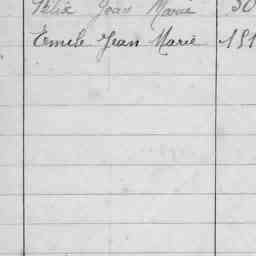 Félix Jean Marie 30
Emile Jean Marie 151